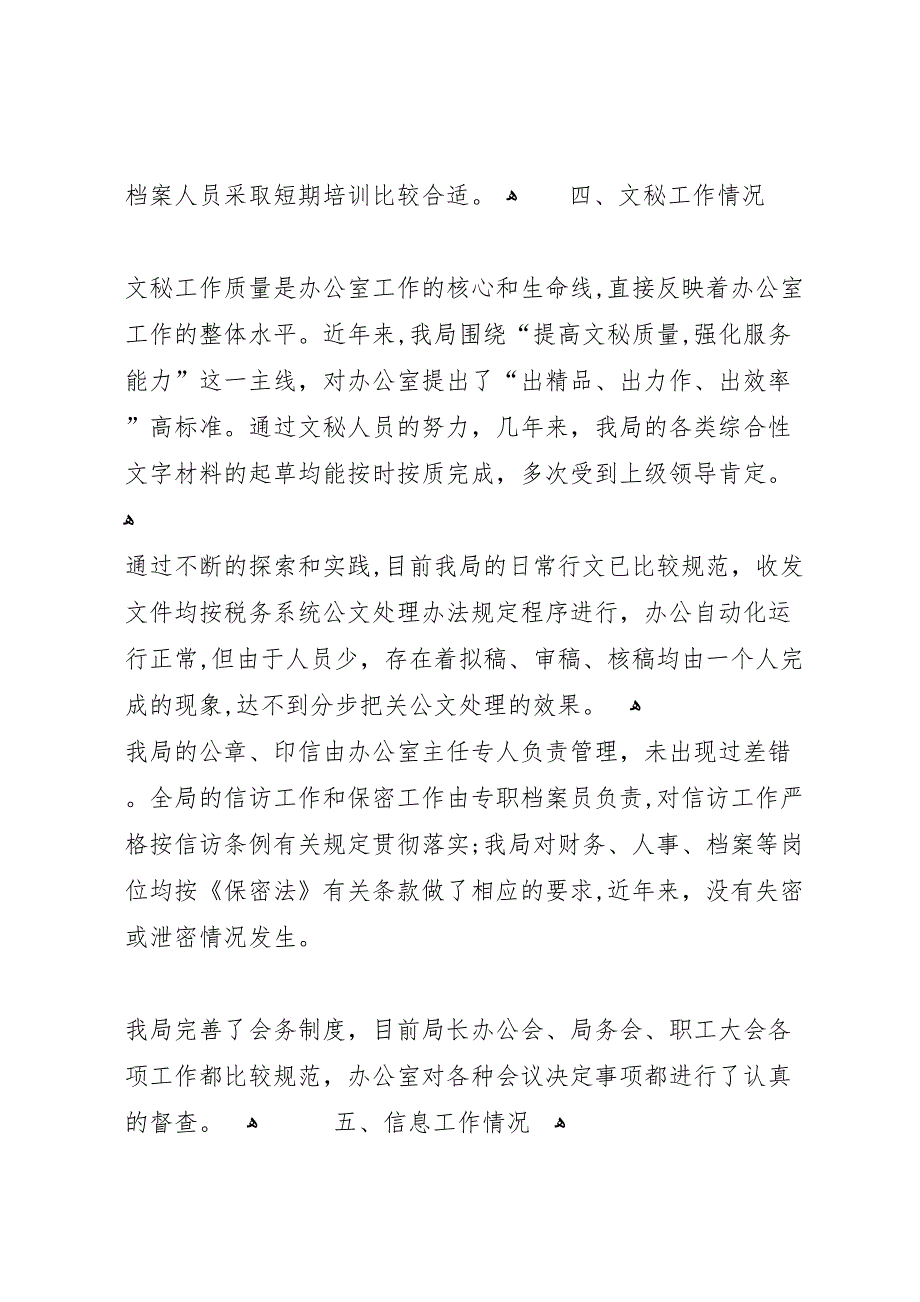 档案人员采取短期培训比较合适。 ﻫ 四、文秘工作情况
文秘工作质量是办公室工作的核心和生命线,直接反映着办公室
工作的整体水平。近年来,我局围绕“提高文秘质量,强化服务
能力”这一主线，对办公室提出了“出精品、出力作、出效率
”高标准。通过文秘人员的努力，几年来，我局的各类综合性
文字材料的起草均能按时按质完成，多次受到上级领导肯定。
ﻫ
通过不断的探索和实践,目前我局的日常行文已比较规范，收发
文件均按税务系统公文处理办法规定程序进行，办公自动化运
行正常,但由于人员少，存在着拟稿、审稿、核稿均由一个人完
成的现象,达不到分步把关公文处理的效果。 ﻫ
我局的公章、印信由办公室主任专人负责管理，未出现过差错
。全局的信访工作和保密工作由专职档案员负责,对信访工作严
格按信访条例有关规定贯彻落实;我局对财务、人事、档案等岗
位均按《保密法》有关条款做了相应的要求,近年来，没有失密
或泄密情况发生。
我局完善了会务制度，目前局长办公会、局务会、职工大会各
项工作都比较规范，办公室对各种会议决定事项都进行了认真
的督查。 ﻫ 五、信息工作情况 ﻫ